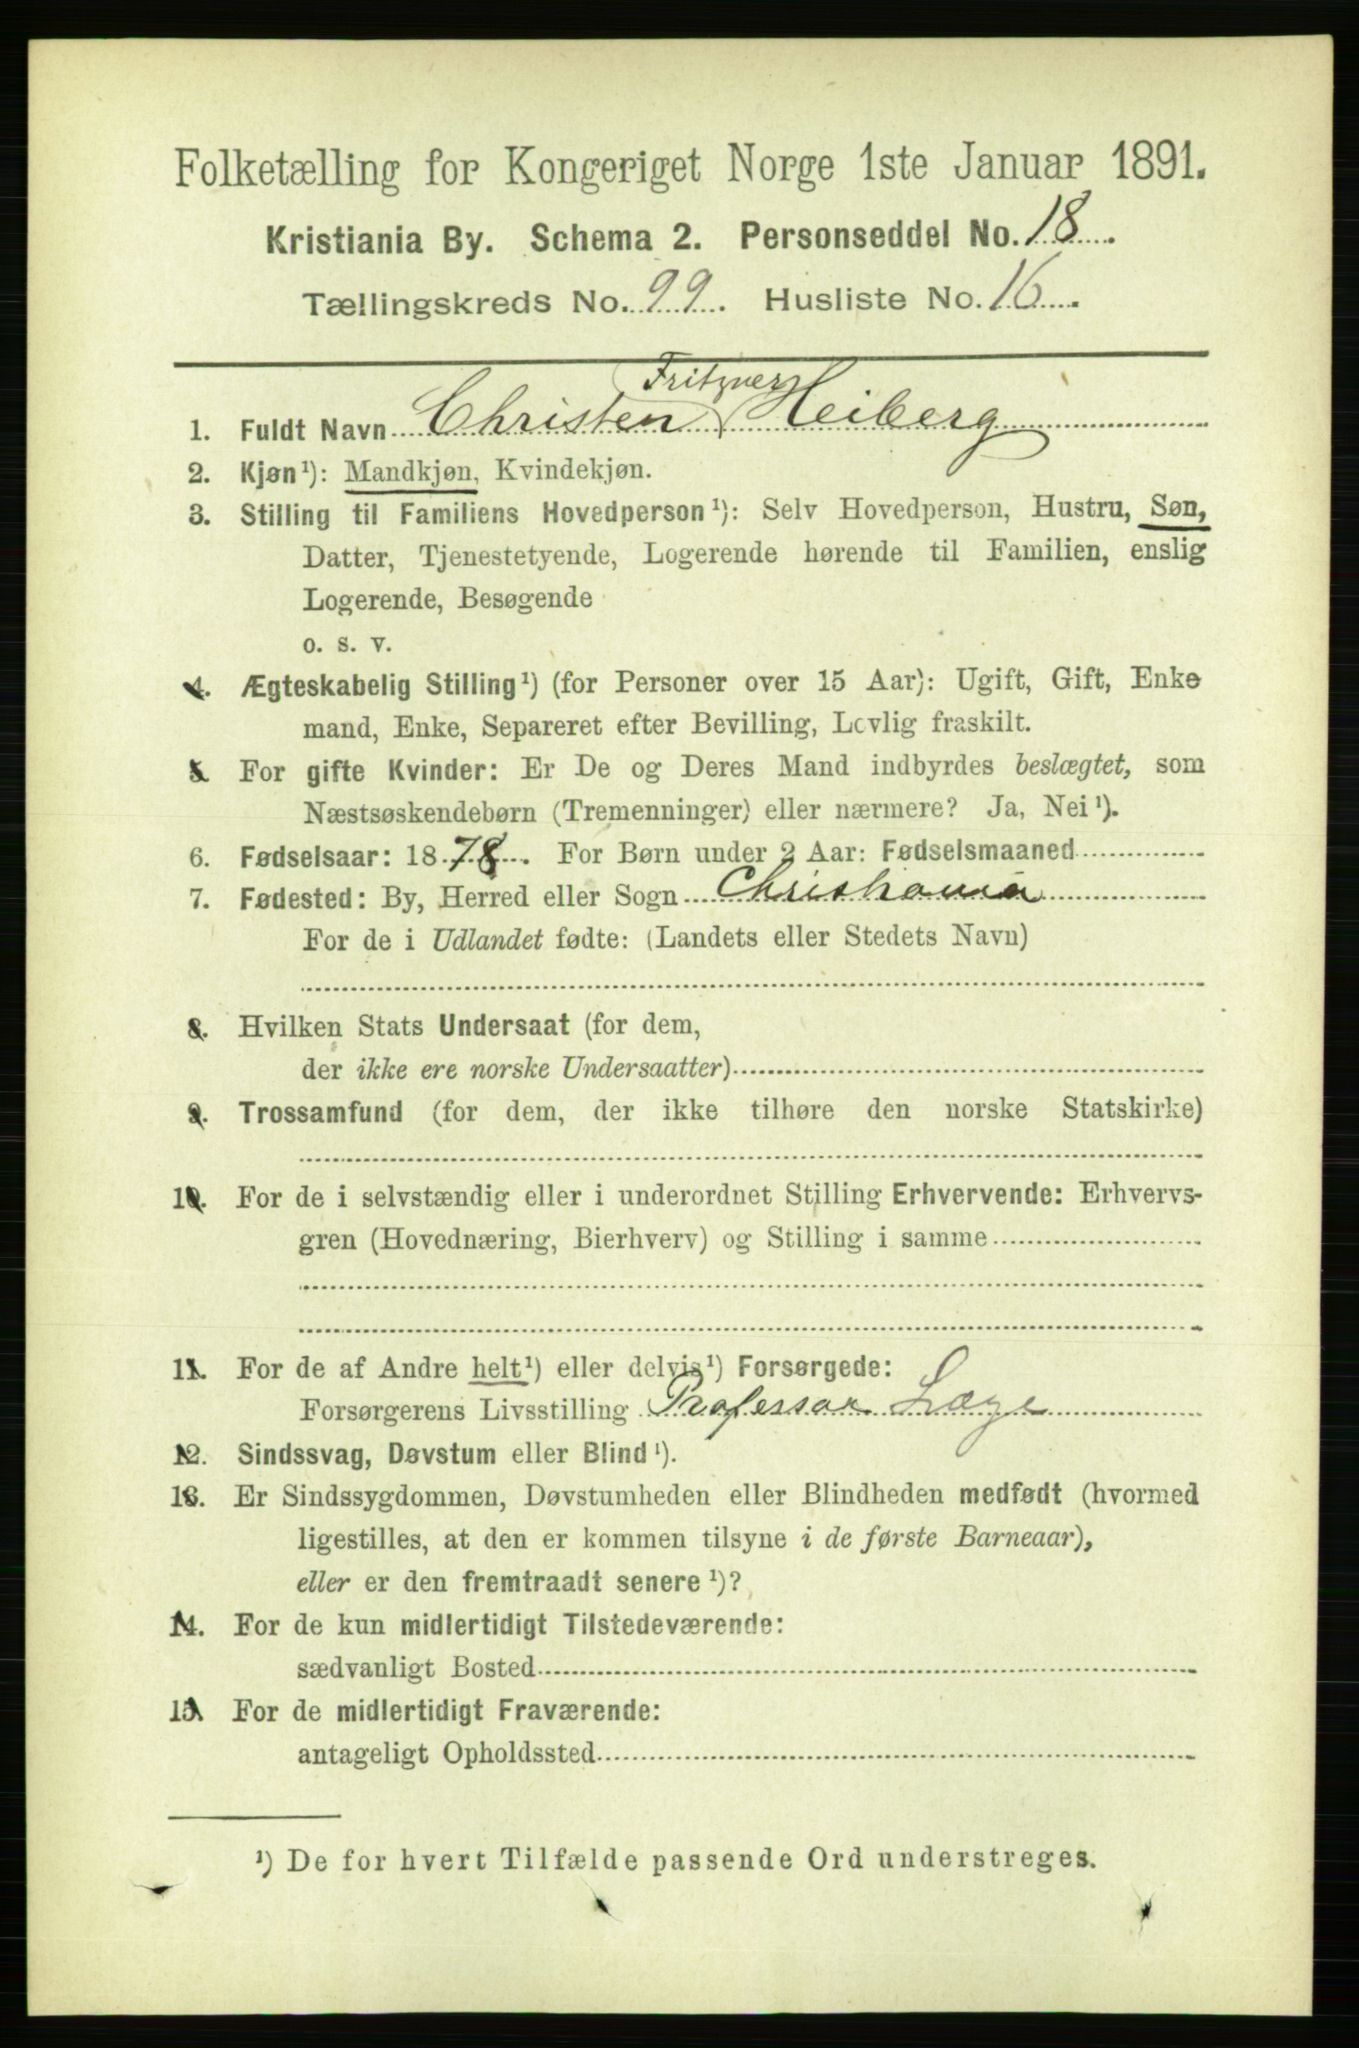 Folketælling for Kongeriget Norge 1ste Januar 1891.
Kristiania By. Schema 2. Personseddel No. 18.
Tællingskreds No. 99. Husliste No. 16.
Fritzner
1. Fuldt Navn Christen Heiberg
2. Kjøn¹): Mandkjøn, Kvindekjøn.
3. Stilling til Familiens Hovedperson¹): Selv Hovedperson, Hustru, Søn,
Datter, Tjenestetyende, Logerende hørende til Familien, enslig
Logerende, Besøgende
o. s. v.
4. Ægteskabelig Stilling¹) (for Personer over 15 Aar): Ugift, Gift, Enke
mand, Enke, Separeret efter Bevilling, Lovlig fraskilt.
5. For gifte Kvinder: Er De og Deres Mand indbyrdes beslægtet, som
Næstsøskendebørn (Tremenninger) eller nærmere? Ja, Nei¹).
6. Fødselsaar: 1878. For Børn under 2 Aar: Fødselsmaaned
7. Fødested: By, Herred eller Sogn Christiania
For de i Udlandet fødte: (Landets eller Stedets Navn)
8. Hvilken Stats Undersaat (for dem,
der ikke ere norske Undersaatter)
9. Trossamfund (for dem, der ikke tilhøre den norske Statskirke)
10. For de i selvstændig eller i underordnet Stilling Erhvervende: Erhvervs-
gren (Hovednæring, Bierhverv) og Stilling i samme
11. For de af Andre helt¹) eller delvis¹) Forsørgede:
Forsørgerens Livsstilling Professor Læge
12. Sindssvag, Døvstum eller Blind¹).
13. Er Sindssygdommen, Døvstumheden eller Blindheden medfødt (hvormed
ligestilles, at den er kommen tilsyne i de første Barneaar),
eller er den fremtraadt senere¹)?
14. For de kun midlertidigt Tilstedeværende:
sædvanligt Bosted
15. For de midlertidigt Fraværende:
antageligt Opholdssted
¹) De for hvert Tilfælde passende Ord understreges.